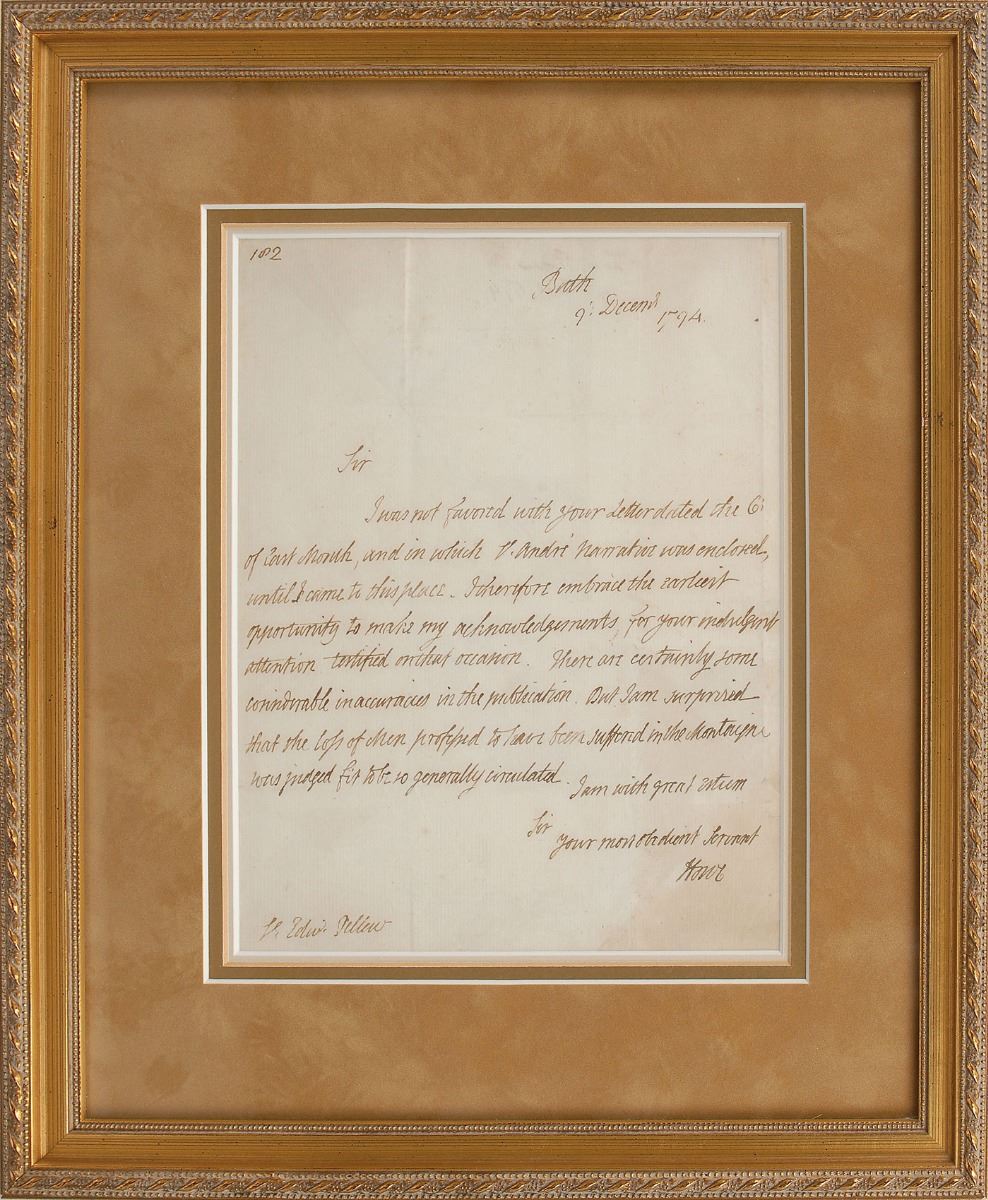 182
Bath
9: Decemr 1794.
Sir
I was not favored with your Letter dated the 6:
of last Month, and in which St. André Narrative was enclosed,
until I came to this place. I therefore embrace the earliest
opportunity to make my acknowledgements, for your indulgent
attention testified on that occasion. There are certainly some
considerable inaccuracies in the publication. But I am surprised
that the loss of Men professed to have been suffered in the Montaigne
was judged fit to be so generally circulated. I am with great esteem
Sir
your most obedient Servant
Howe
Sr. Edwd. Pellew